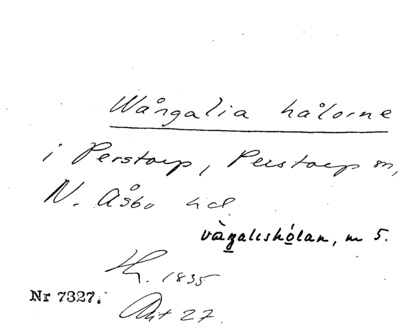 Wångalia hålorne
i Perstorp, Perstorp sn,
N. Åsbo hd
vångalishólan, m 5.
Lh. 1835
Nr 7327.
Akt 27